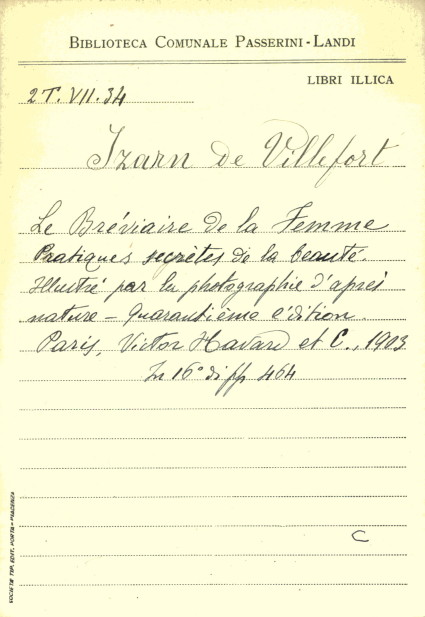 BIBLIOTECA COMUNALE PASSERINI-LANDI
LIBRI ILLICA
2T.VII.34
Izarn de Villefort
Le Bréviaire de la Femme
Pratiques secrètes de la beauté.
Illustré par la photographie d'après
nature - Quarantième édition.
Paris, Victor Havard et C., 1903
In 16° di pp 464
C
SOCIETÀ TIP. EDIT. PORTA - PIACENZA